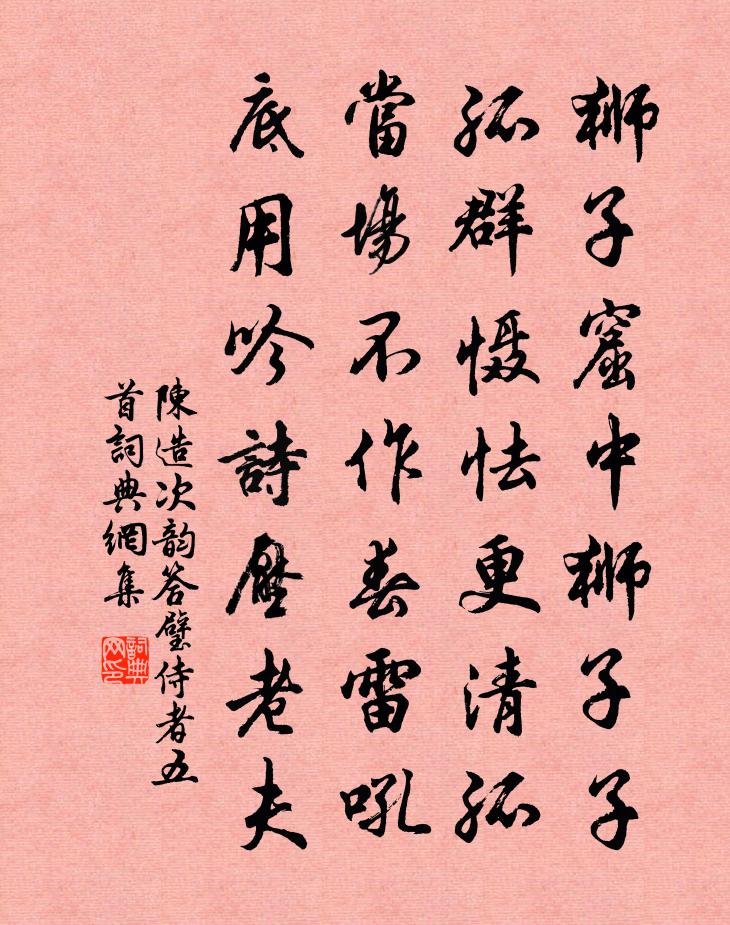 獅子窟中獅子子
孤群慑怯更清孤
當場不作春雷吼
底用吟詩壓老夫
陳造次韵答璧侍者五
首詞典網集
詞典网印